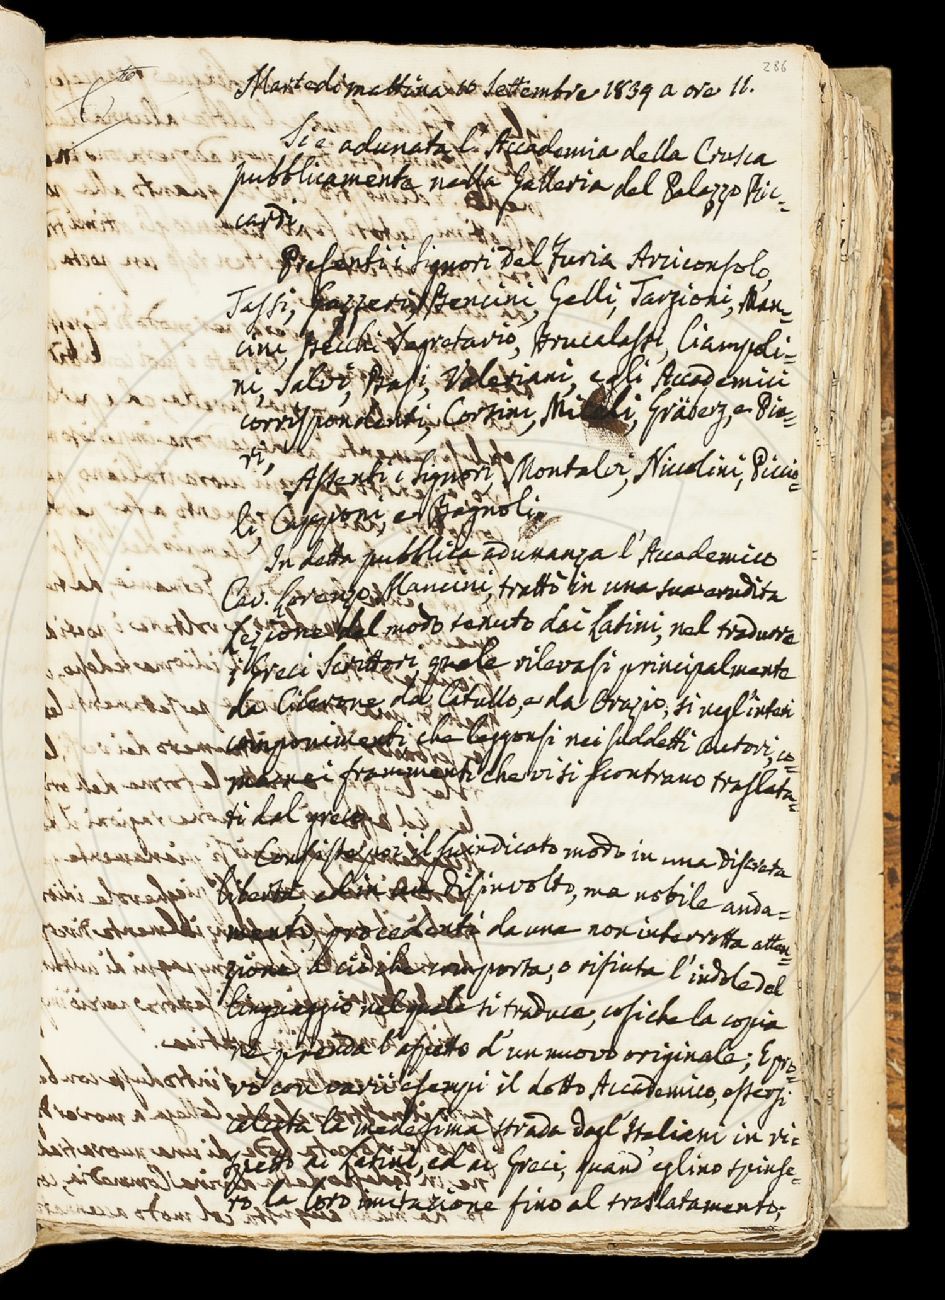 286
Martedì mattina 10 Settembre 1839 a ore 11.
Si è adunata l'Accademia della Crusca
pubblicamente nella Galleria del Palazzo Ric=
cardi
Presenti i Signori Del Furia Arciconsolo,
Tassi, Gazzeri, Bencini, Gelli, Targioni, Man=
cini, Becchi Segretario, Brucalassi, Ciampoli=
ni, Salvi, Basi, Valeriani, e gli Accademici
corrispondenti, Corsini, Micali, Gräberg, e Pie=
ri,
Assenti i Signori, Montalvi, Niccolini, Piccio=
li, Capponi, e Bagnoli.
In detta pubblica adunanza l'Accademico
Cav. Lorenzo Mancini, trattò in una sua erudita
Lezione del modo tenuto dai Latini, nel tradurre
i Greci Scrittori quale rilevasi principalmente
da Cicerone da Catullo, e da Orazio, sì negl'interi
componimenti che leggonsi nei suddetti autori, co=
me nei frammenti che vi si scontrano traslata=
ti dal greco
Consiste poi il suindicato modo in una discreta
libertà, ed in un disinvolto, ma nobile anda=
mento, procedenti da una non interrotta atten=
zione a ciò che comporta, o rifiuta l'indole del
linguaggio nel quale si traduce, cosiche la copia
ne prenda l'aspetto d'un nuovo originale; E pro=
vò con varii esempi il dotto Accademico, essersi
calcata la medesima strada dagl'Italiani in ri=
spetto ai Latini, ed ai Greci, quand'eglino spinse=
ro la loro imitazione fino al traslatamento;